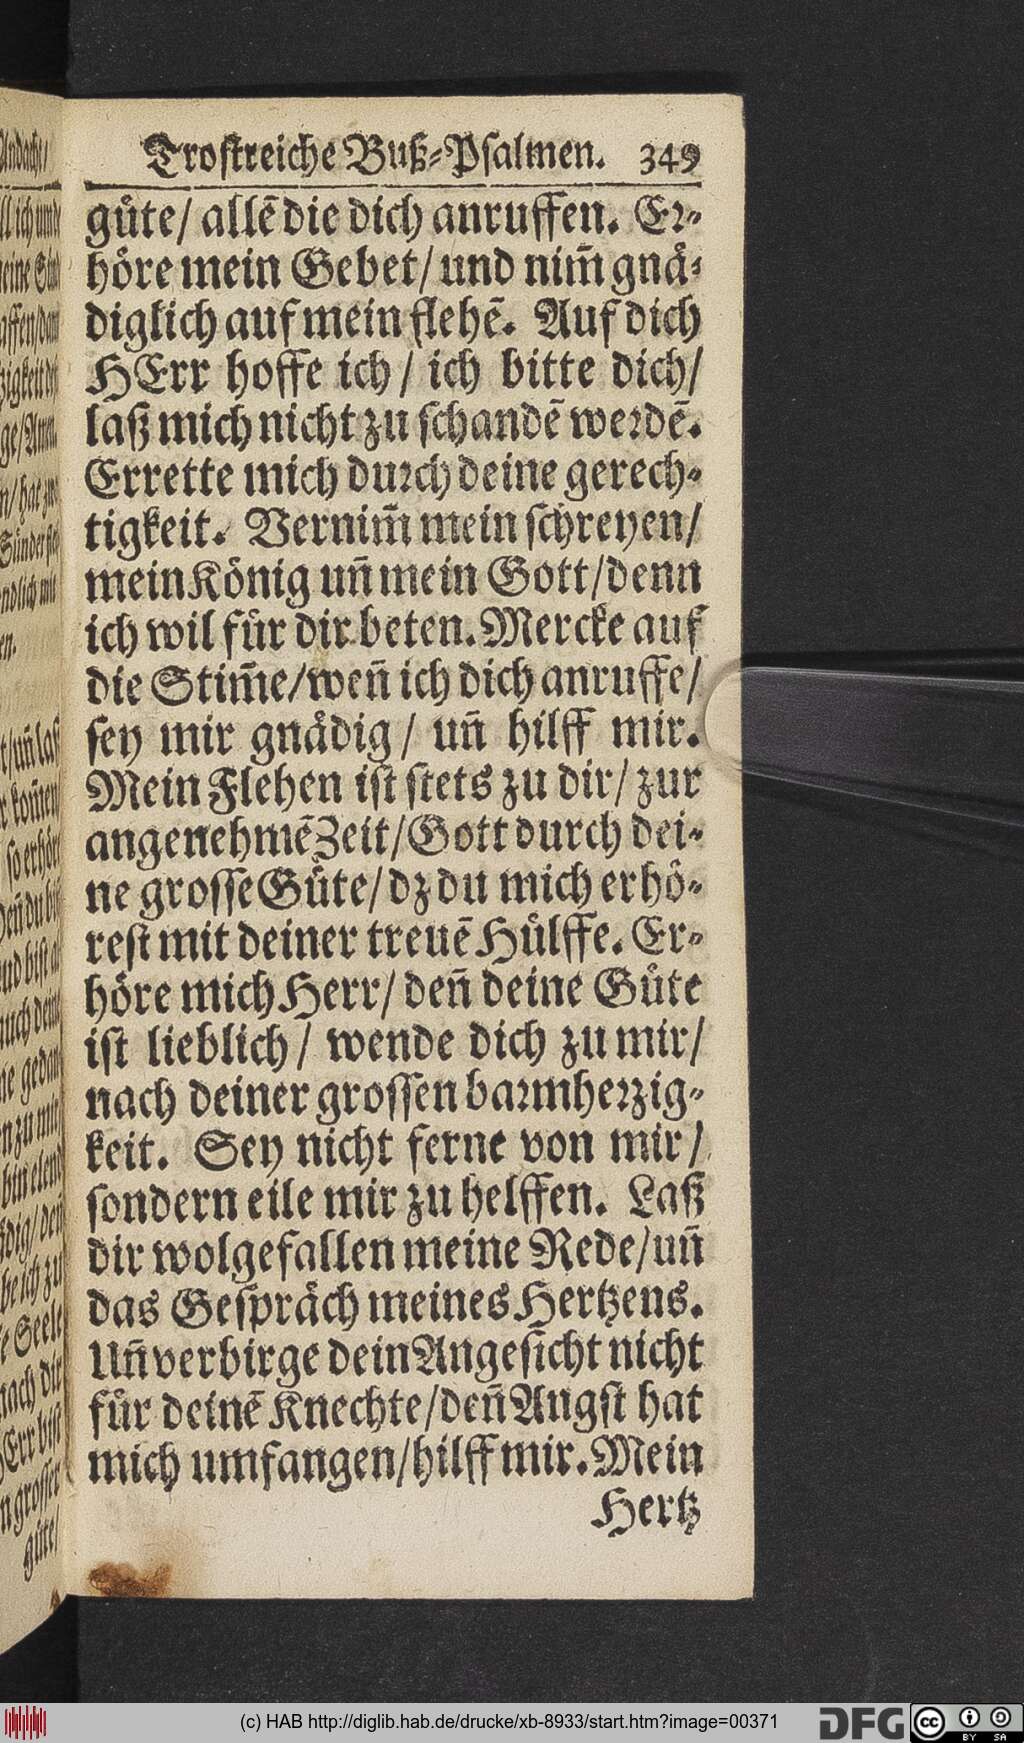 Trostreiche Buß-Psalmen. 349
guͤte/ allē die dich anruffen. Er-
hoͤre mein Gebet/ und nim̄ gnaͤ-
diglich auf mein flehē. Auf dich
HErr hoffe ich/ ich bitte dich/
laß mich nicht zu schandē werdē.
Errette mich durch deine gerech-
tigkeit. Vernim̄ mein schreyen/
mein Koͤnig un̄ mein Gott/ denn
ich wil fuͤr dir beten. Mercke auf
die Stim̄e/ wen̄ ich dich anruffe/
sey mir gnaͤdig/ un̄ hilff mir.
Mein Flehen ist stets zu dir/ zur
angenehmē Zeit/ Gott durch dei-
ne grosse Guͤte/ dz du mich erhoͤ-
rest mit deiner treuē Huͤlffe. Er-
hoͤre mich Herr/ den̄ deine Guͤte
ist lieblich/ wende dich zu mir/
nach deiner grossen barmherzig-
keit. Sey nicht ferne von mir/
sondern eile mir zu helffen. Laß
dir wolgefallen meine Rede/ un̄
das Gespraͤch meines Hertzens.
Un̄ verbirge dein Angesicht nicht
fuͤr deinē Knechte/ den̄ Angst hat
mich umfangen/ hilff mir. Mein
Hertz
(c) HAB http://diglib.hab.de/drucke/xb-8933/start.htm?image=00371
DFG
cc BY SA